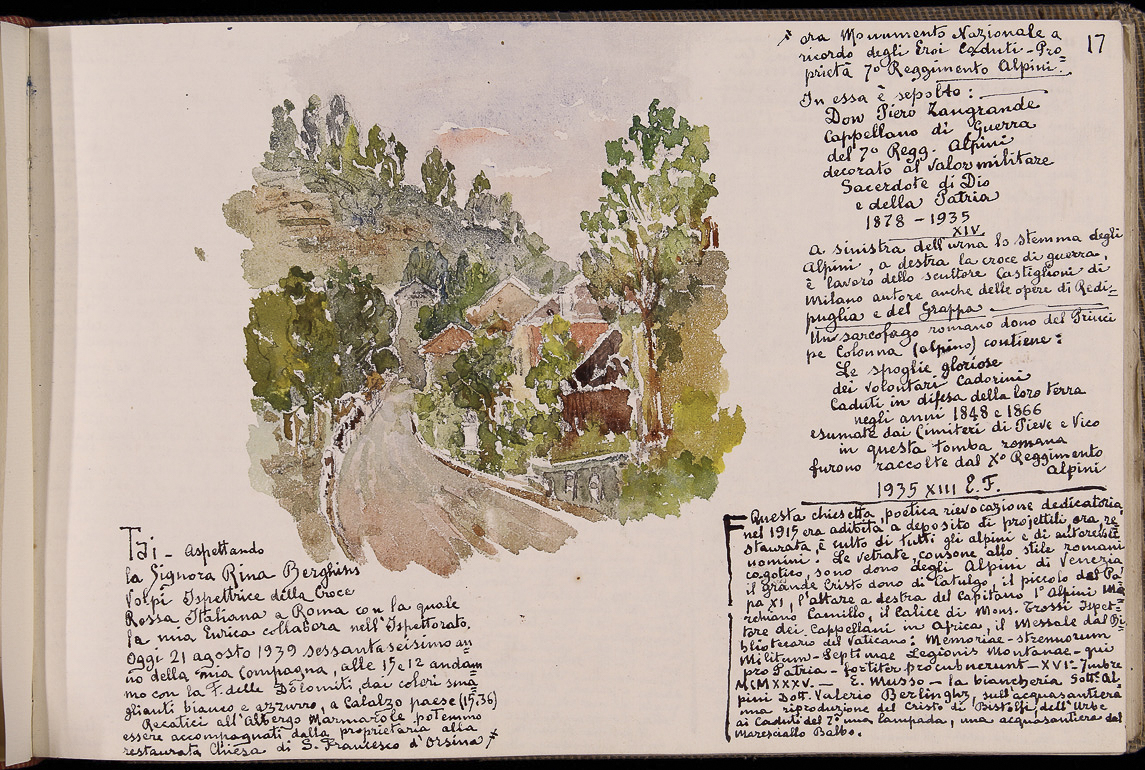 Tai - Aspettando
la Signora Rina Berghins
Volpi Ispettrice della Croce
Rossa Italiana a Roma con la quale
la mia Enrica collabora nell'Ispettorato.
Oggi 21 agosto 1939 sessantaseisimo an=
no della mia Compagna, alle 15 e 12 andam=
mo con la F. delle Dolomiti, dai colori sma=
glianti bianco e azzurro, a Calalzo paese (15,36)
Recatici all'Albergo Marmarole potemmo
essere accompagnati dalla proprietaria alla
restaurata Chiesa di S. Francesco d'Orsina
17
ora Monumento Nazionale a
ricordo degli Eroi Caduti - Pro=
prietà 7º Reggimento Alpini.
In essa è sepolto:
Don Piero Zangrande
Cappellano di Guerra
del 7º Regg. Alpini
decorato al valor militare
Sacerdote di Dio
e della Patria
1878 - 1935
XIV
A sinistra dell'urna lo stemma degli
Alpini, a destra la croce di guerra,
è lavoro dello scultore Castiglioni di
Milano autore anche delle opere di Redi=
puglia e del Grappa
Un sarcofago romano dono del Princi
pe Colonna (alpino) contiene:
Le spoglie gloriose
dei volontari Cadorini
Caduti in difesa della loro terra
negli anni 1848 e 1866
esumate dai Cimiteri di Pieve e Vico
in questa tomba romana
furono raccolte dal Xº Reggimento
Alpini
1935 XIII E.F.
Questa chiesetta, poetica rievocazione dedicatoria,
nel 1915 era adibita a deposito di projettili ora re=
staurata, è culto di tutti gli alpini e di autorevoli
uomini. Le vetrate, consone allo stile romani
co gotico, sono dono degli Alpini di Venezia
il grande Cristo dono di Catulgo, il piccolo del Pa=
pa XI, l'altare a destra del Capitano 1º Alpini Ma=
rchiano Camillo, il Calice di Mons. Trossi Ispet=
tore dei Cappellani in Africa, il Messale dal Bi=
bliotecario del Vaticano: Memoriae - strenuorum
Militum - Septimae Legionis Montanae - qui
pro Patria - fortiter procubuerunt - XVI - 7mbre
MCMXXXV - E. Musso - la biancheria Sott. Al=
pini Dott. Valerio Berlinghz, sull'acquasantiera
una riproduzione del Cristo di Bistolfi, dell'Urbe
ai Caduti del 7º una lampada, una acquasantiera del
Maresciallo Balbo.